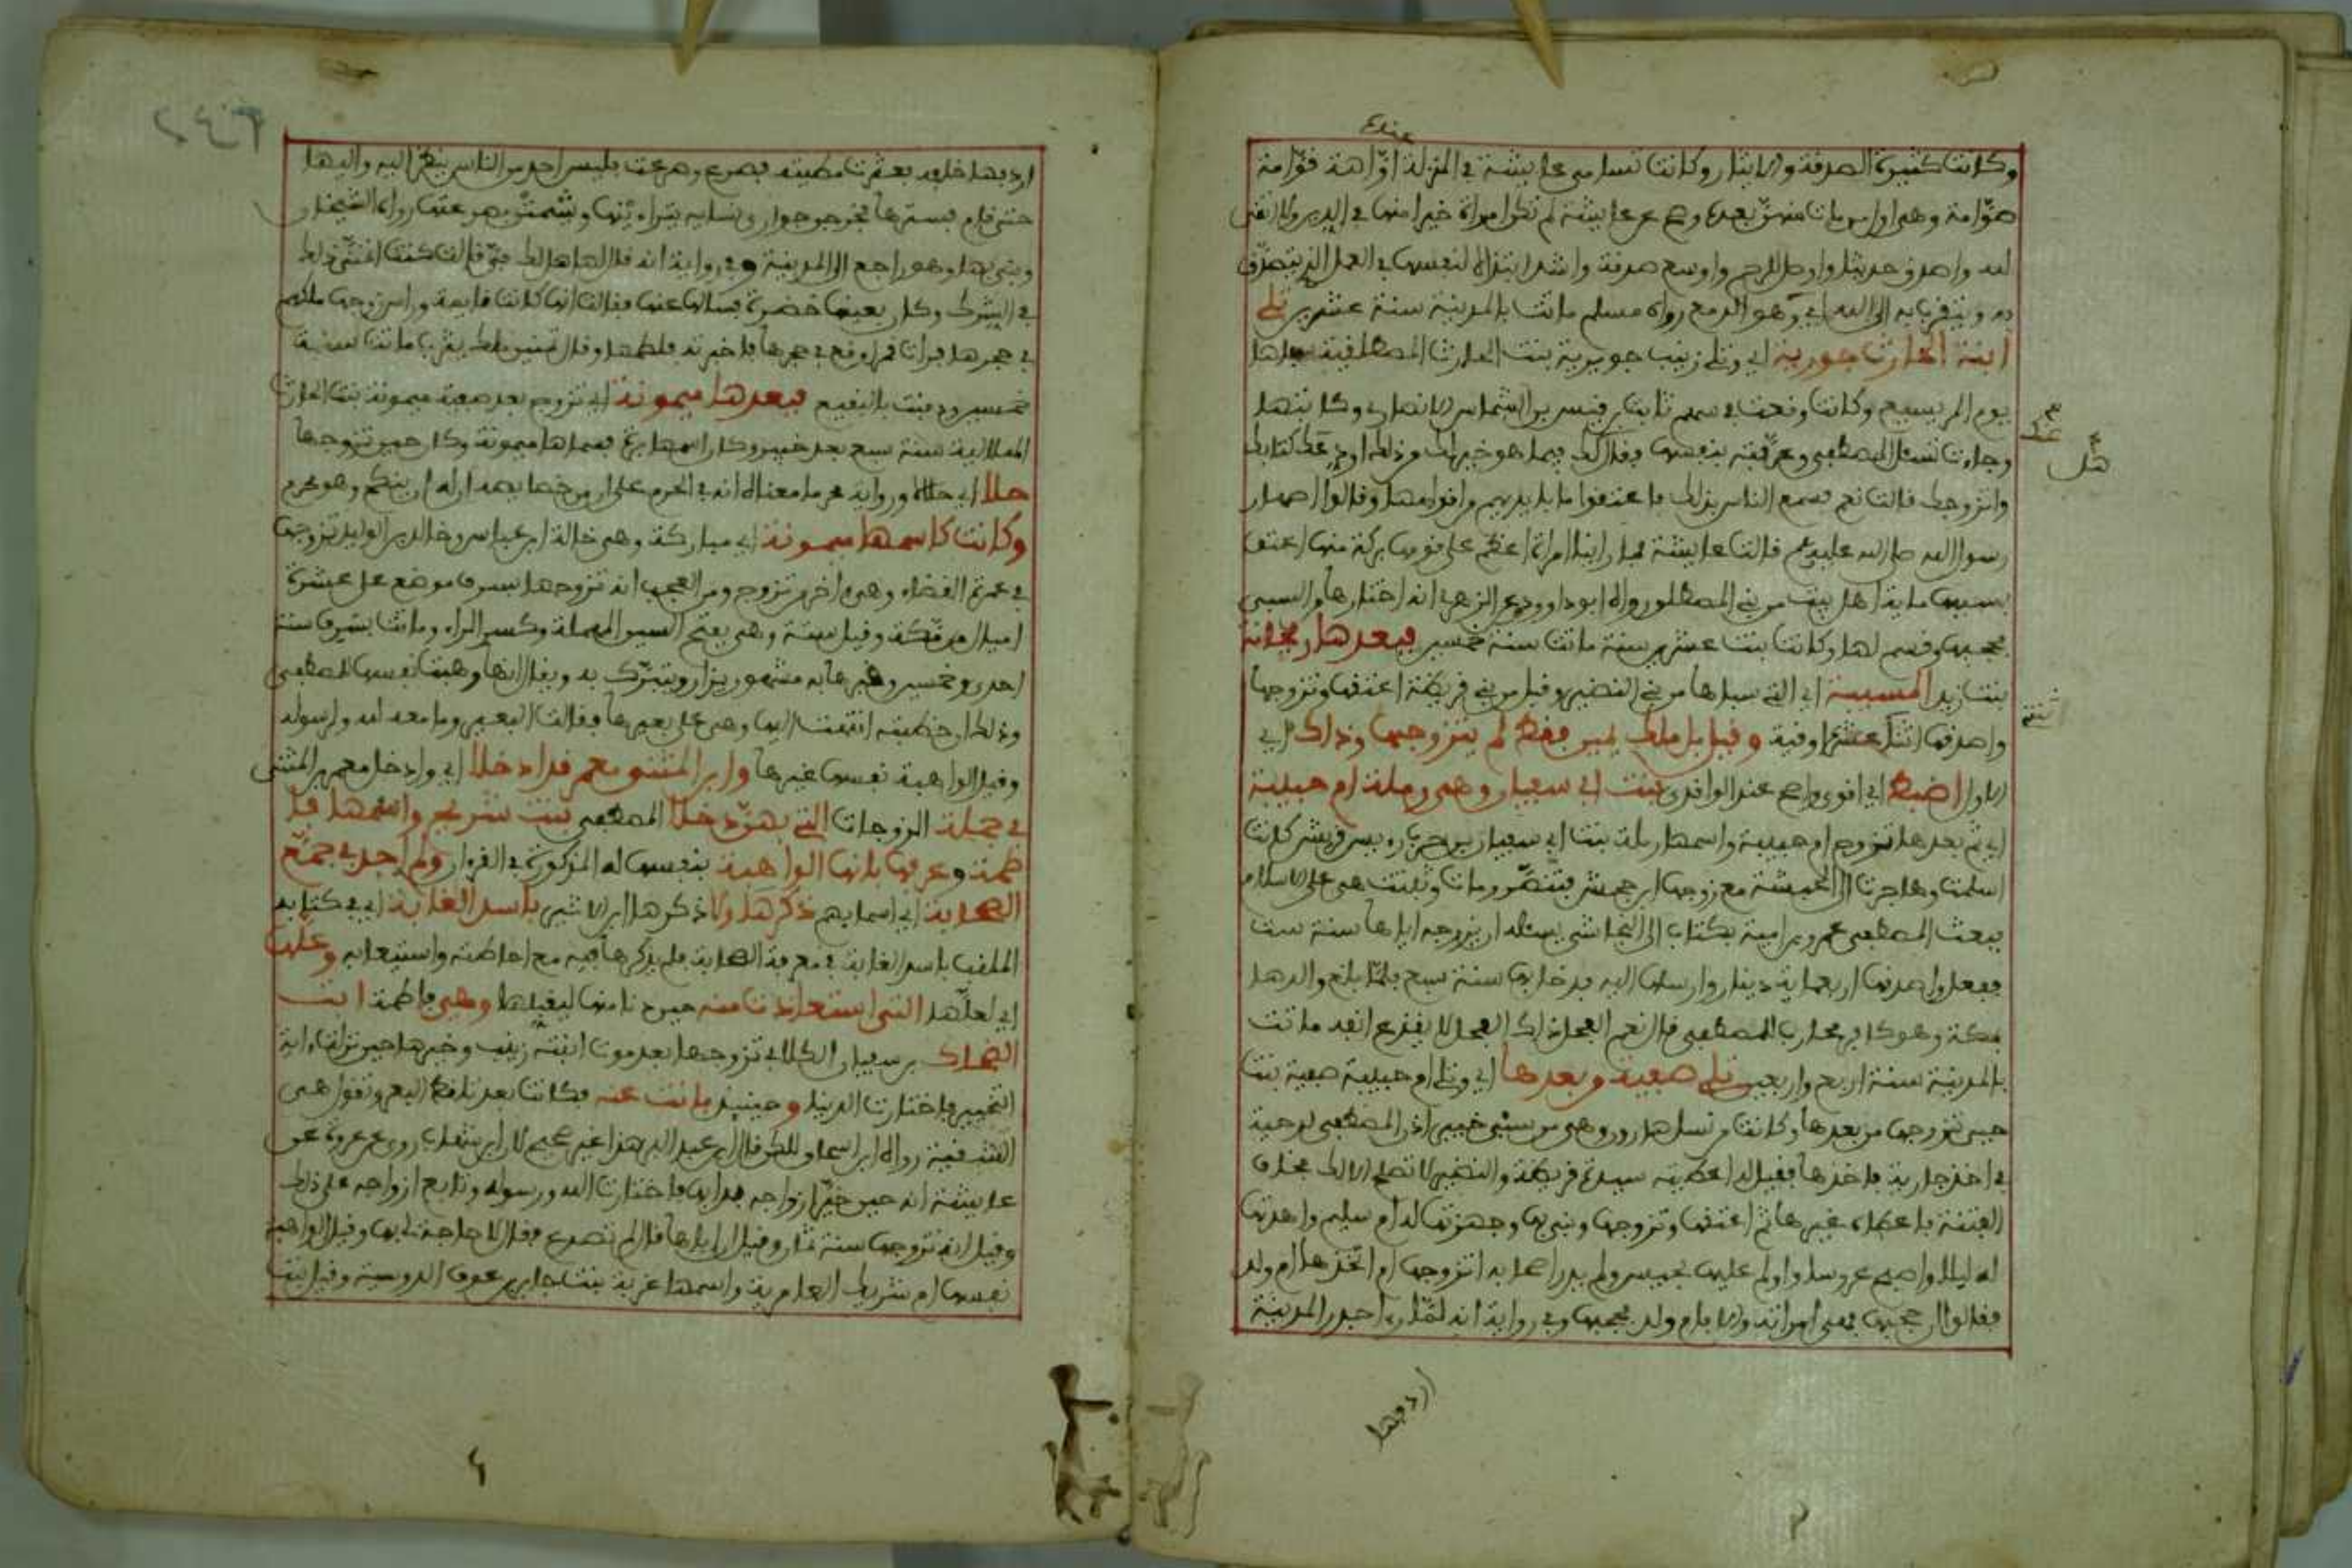 عنده
وكانت كثيرة الصدقة والايثار وكانت تسامى عايشة في المنزلة اوّاهة قوّامة
صوّامة وهي اول من مات منهنّ بعده وصح عن عايشة لم تكن امراة خيرا منها في الدين ولا اتقى
لله واصدق حديثا واوصل للرحم واوسع صدقة واشد ابتذالا لنفسها في العمل الذي تتصدق
به وتتقرب به الى الله اي وهو الدبغ رواه مسلم ماتت بالمدينة سنة عشرين تلي
ابنة الحارث جويرية اي وتلي زينب جويرية بنت الحارث المصطلقية سباها
يوم المريسيع وكانت وقعت في سهم ثابت بن قيس بن الشماس الانصاري وكاتبها
وجاءت تسئل المصطفى وعرّفته بنفسها فقال لك فيما هو خير لك من ذلك اودي عنك كتابك
واتزوجك قالت نعم فسمع الناس بذلك فاعتقوا ما بايديهم من اقوامها وقالوا اصهار
رسول الله صلى الله عليه وسلم قالت عايشة فما راينا امراة اعظم على قومها بركة منها اعتق
بسببها ماية اهل بيت من بني المصطلق رواه ابو داوود وعن الزهري انه اختارها من السبي
فحجبها وقسم لها وكانت بنت عشرين سنة ماتت سنة خمسين فبعدها ريحانة
بنت زيد المسبية اي التي سباها من بني النضير وقيل من بني قريظة اعتقها وتزوجها
واصدقها اثنتا عشر اوقية وقيل بل ملك يمين فقط لم يتزوجها وذاك اي
الاول اضبط اي اقوى واصح عند الواقدي بنت ابي سفيان وهي رملة ام حبيبة
اي ثم بعدها تزوج ام حبيبة واسمها رملة بنت ابي سفيان بن حرب ريس قريش كانت
اسلمت وهاجرت الى الحبشة مع زوجها ابن جحش فتنصّر ومات وثبتت هي على الاسلام
فبعث المصطفى عمرو بن امية بكتاب الى النجاشي يسئله ان يزوجه اياها سنة ست
ففعل واصدقها اربعماية دينار وارسلها اليه فدخل بها سنة سبع فلمّا بلغ والدها
بمكة وهو كافر محارب المصطفى قال نعم الفحل ذاك الفحل لا يقدع انفه ماتت
بالمدينة سنة اربع واربعين تلي صفية وبعدها اي وتلي ام حبيبة صفية بنت
حيي تزوجها من بعدها وكانت من نسل هارون وهي من سبي خيبر اذن المصطفى لدحية
في اخذ جارية فاخذها فقيل له اعطيته سيدة قريظة والنضير لا تصلح الا لك فخاف
الفتنة فاعطاه غيرها ثم اعتقها وتزوجها وبنى بها وجهزتها له ام سليم واهدتها
له ليلا واصبح عروسا واولم عليها بحيس ولم يدر اصحابه اتزوجها ام اتخذها ام ولد
فقالوا ان حجبها فهي امراته والا فام ولد فحجبها وفي رواية انه لمّا راى جدر المدينة
اردفها
اردفها خلفه فعثرت مطيته فصرع وصرعت فليس احد من الناس ينظر اليه واليها
حتى قام فسترها فخرجن جواري نسايه يتراوينها ويشمتن بصرعتها رواه الشيخان
وبنى بها وهو راجع الى المدينة وفي رواية انه قال لها هل لك فيّ قالت كنت اتمنّى ذلك
في الشرك وكان بعينها خضرة فسالها عنها فقالت انها كانت نايمة وراس زوجها ملكهم
في حجرها فرات قمرا وقع في حجرها فاخبرته فلطمها وقال تتمنين ملك يثرب ماتت سنة
خمسين ودفنت بالبقيع فبعدها ميمونة اي تزوج بعد صفية ميمونة بنت الحارث
الهلالية سنة سبع بعد خيبر وكان اسمها برة فسماها ميمونة وكان حين تزوجها
حلا اي حلالا ورواية محرما معناه انه في الحرم على ان من خصايصه ان له ان ينكح وهو محرم
وكانت كاسمها ميمونة اي مباركة وهي خالة ابن عباس وخالد بن الوليد تزوجها
في عمرة القضاء وهي اخر من تزوج ومن العجب انه تزوجها بسرف موضع على عشرة
اميال من مكة وقيل ستة وهي بفتح السين المهملة وكسر الراء وماتت بسرف سنة
احدى وخمسين وقبرها به مشهور يزار ويتبرّك به ويقال انها وهبت نفسها للمصطفى
وذلك ان خطبته انتهت اليها وهي على بعيرها فقالت البعير وما معه لله ولرسوله
وقيل الواهبة نفسها غيرها وابن المثنى معمر قد ادخلا اي وادخل معمر بن المثنى
في جملة الزوجات التي بهنّ دخلا المصطفى بنت شريح واسمها فا
طمة وعرفها بانها الواهبة بنفسها له المذكورة في القران ولم اجد في جمع
الصحابة اي اسمايهم ذكرها ولا ذكرها ابن الاثير باسد الغابة اي في كتابه
الملقب باسد الغابة في معرفة الصحابة فلم يذكرها فيه مع احاطته واستيعابه وعلّها
اي لعلّها التي استعاذت منه حين دنا منها ليقبلها وهي فاطمة ابنت
الضحاك بن سفيان الكلابي تزوجها بعد موت ابنته زينب وخيرها حين نزلت اية
التخيير فاختارت الدنيا وحينيذ بانت عنه فكانت بعد تلقط البعر وتقول هي
الشقية رواه ابن اسحاق لكن قال ابن عبد البر هذا غير صحيح لان ابن شهاب روى عن عروة عن
عايشة انه حين خيّر ازواجه بدا بها فاختارت الله ورسوله وتابع ازواجه على ذلك
وقيل انه تزوجها سنة ثمان وقيل ان اباها قال لم تصدع فقال لا حاجة لي بها وقيل الواهبة
نفسها ام شريك العامرية واسمها غزية بنت جابر بن عوف الدوسية وقيل بنت